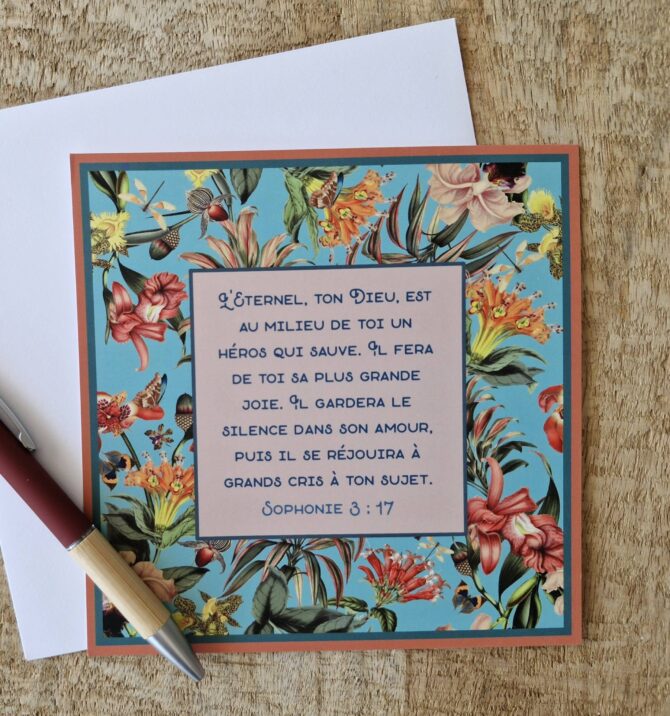 L'Eternel, ton Dieu, est
au milieu de toi un
héros qui sauve. Il fera
de toi sa plus grande
joie. Il gardera le
silence dans son amour,
puis il se réjouira à
grands cris à ton sujet.
Sophonie 3 : 17